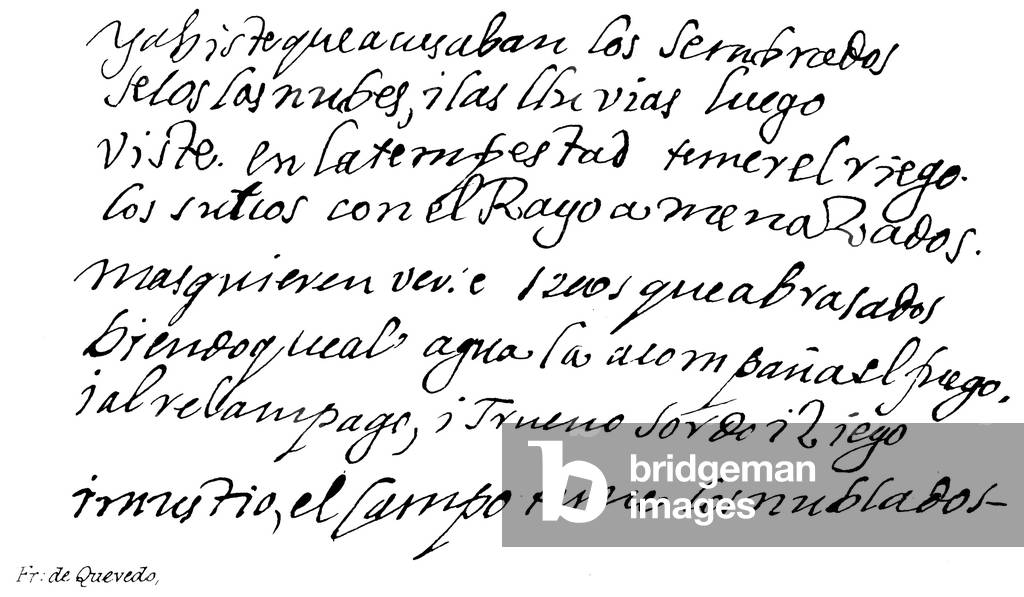 ya biste que acusaban los sembrados
secos las nubes, i las lluvias luego
viste. en la tempestad temer el riego.
los sulcos con el Rayo amenaZados.
mas quieren verse secos que abrasados
biendo que al agua la acompaña el fuego.
i al relampago, i Trueno sordo i Ziego
i mustio, el campo teme los nublados-
Fr: de Quevedo,
bridgeman
images
b